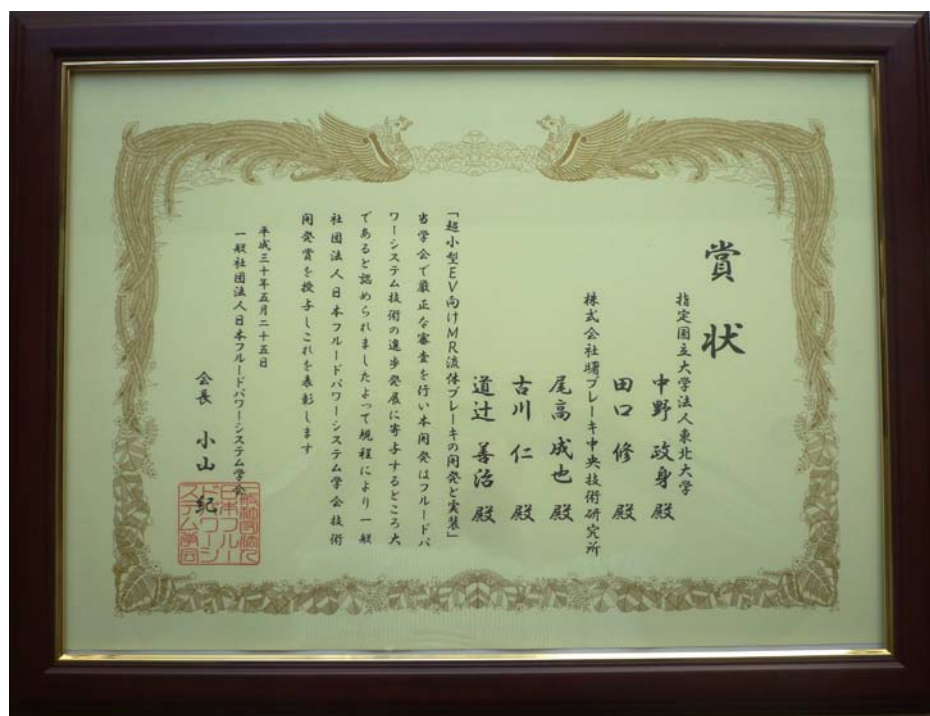 賞状
指定国立大学法人東北大学
中野 政身 殿
株式会社曙ブレーキ中央技術研究所
田口 修 殿
尾高 成也 殿
古川 仁 殿
道辻 善治 殿
「超小型EV向けMR流体ブレーキの開発と実装」
当学会で厳正な審査を行い本開発はフルードパ
ワーシステム技術の進歩発展に寄与するところ大
であると認められましたよって規程により一般
社団法人日本フルードパワーシステム学会技術
開発賞を授与しこれを表彰します
平成三十年五月二十五日
一般社団法人日本フルードパワーシステム学会
会長 小山 紀
一般社団法人
日本フルー
ドパワーシ
ステム学会